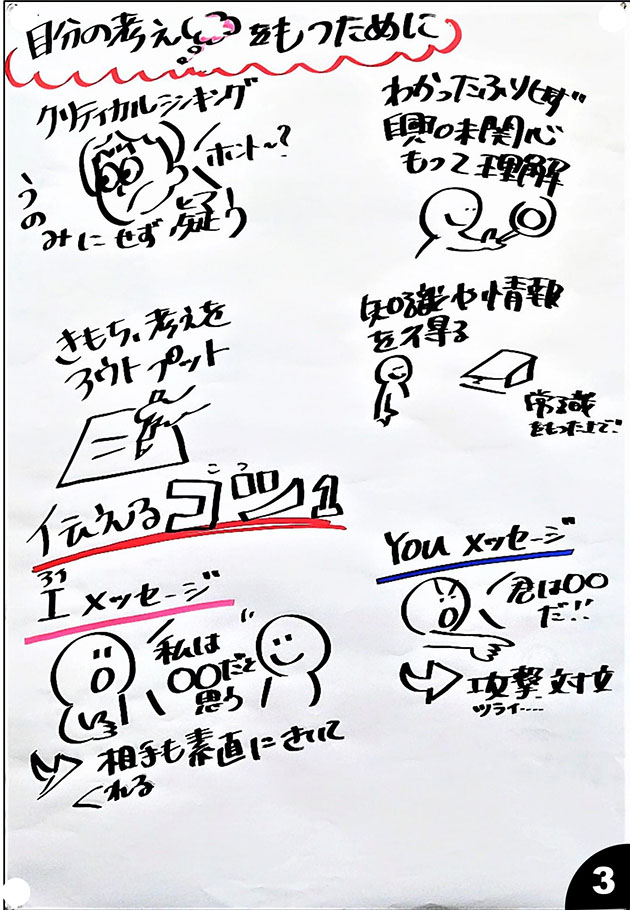 自分の考えをもつために
クリティカルシンキング
ホント〜?
うのみにせず疑う
わかったふりせず
興味関心
もって理解
きもち、考えを
アウトプット
知識や情報
を得る
常識
をもった上で!
伝えるコツ1
コツ
I メッセージ
アイ
私は
〇〇だと
思う
相手も素直にきいて
くれる
You メッセージ
君は〇〇
だ!!
攻撃 対立
ツライ....
3